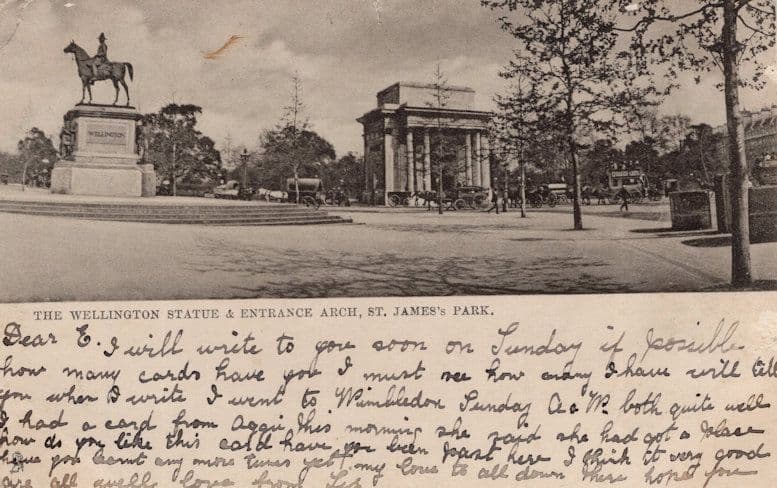 WELLINGTON
THE WELLINGTON STATUE & ENTRANCE ARCH, ST. JAMES'S PARK.
Dear E. I will write to you soon on Sunday if possible
how many cards have you I must see how many I have will tell
you when I write I went to Wimbledon Sunday A & W. both quite well
I had a card from Aggie this morning she said she had got a place
how do you like this card have you been past here I think it very good
have you learnt any more tunes yet, my love to all down there hope you
are all quite well love from